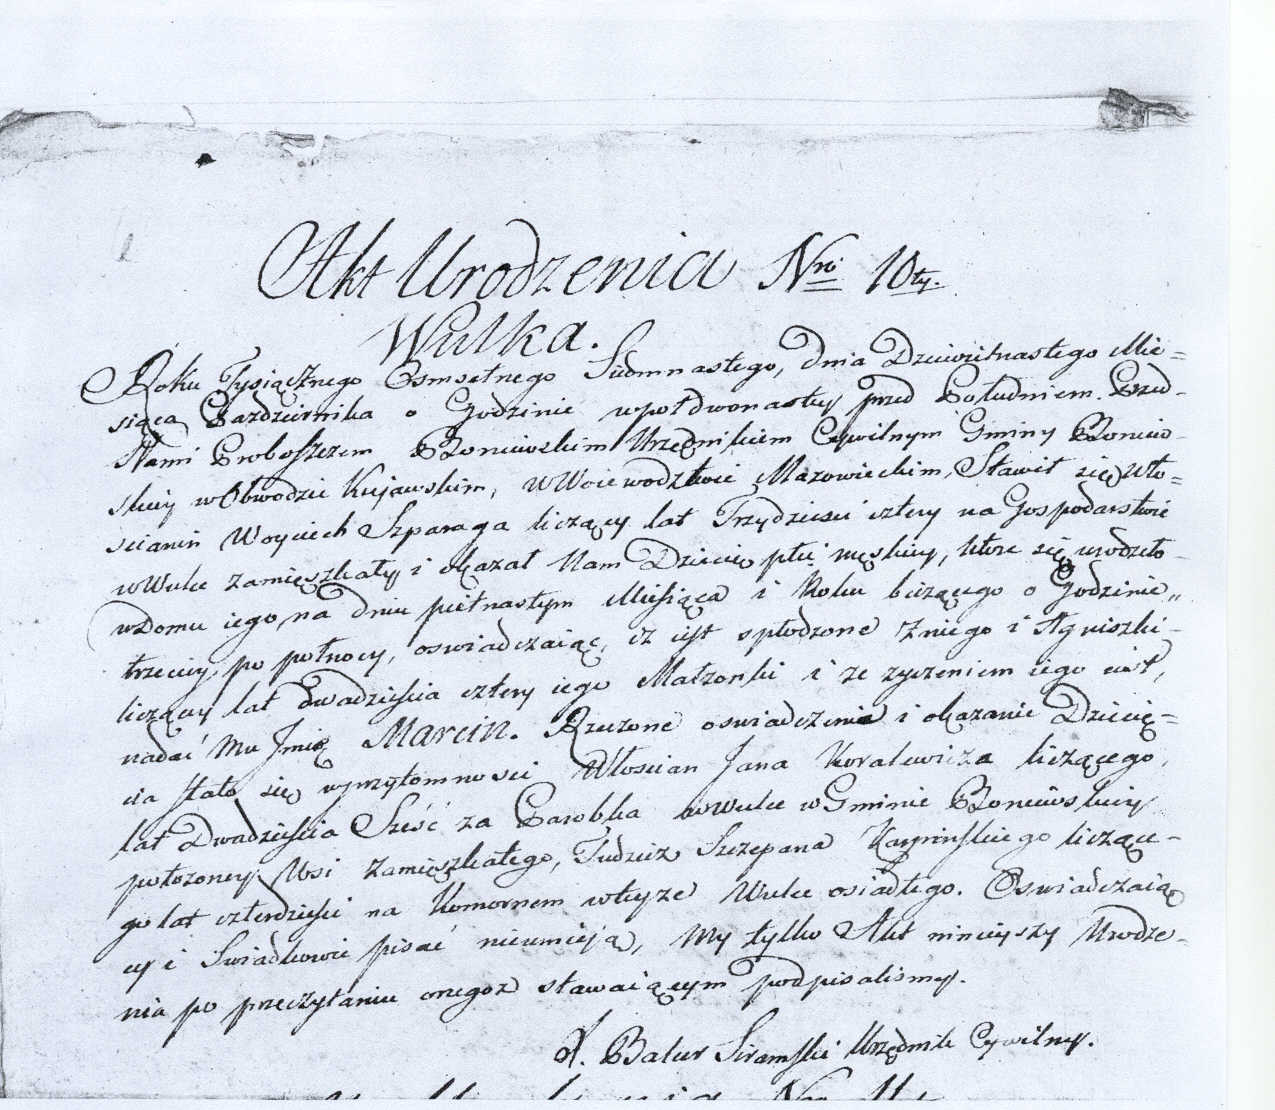 Akt Urodzenia Nro 10ty.
Wulka.
Roku Tysiącznego Osmsetnego Siedmnastego, dnia Dziewiętnastego Mie=
siąca Pazdziernika o Godzinie wpołdwonastey przed Południem. Przed-
Nami Proboszczem Boniewskim Urzędnikiem Cywilnym Gminy Boniew-
skiey w Obwodzie Kujawskim, w Woiewodztwie Mazowieckim, Stawił się Wło=
scianin Woyciech Szparaga liczący lat Trzydziesci cztery na Gospodarstwie
w Wulce zamięszkały i okazał Nam Dziecię płci męskiey, ktore się urodziło
w Domu iego, na dniu piętnastym Miesiąca i Roku bieżącego o Godzinie„
trzeciey, po połnocy, oswiadczaiąc, iz iest spłodzone z niego i Agniszki-
liczącey lat dwadziescia cztery iego Małzonki i ze zyczeniem iego iest,
nadać Mu Jmię Marcin. Rzeczone oswiadczenie i okązanie Dziecię=
cia stało się w przytomnosci Włoscian Jana Koralewicza liczącego,
lat Dwadziescia Sześć za Parobka w Wulce w Gminie Boniewskiey
położoney Wsi Zamięszkałego, Tudzież Szczepana Karpinskiego licząće-
go lat czterdziesci na Komornem w teyze Wulce osiadłego. Oswiadczaią
cy i Swiadkowie pisać nieumieją, My tylko Akt ninieyszy Urodze-
nia po przeczytaniu onegoz stawaiącym podpisalismy.
X. Urzędnik Cywilny.